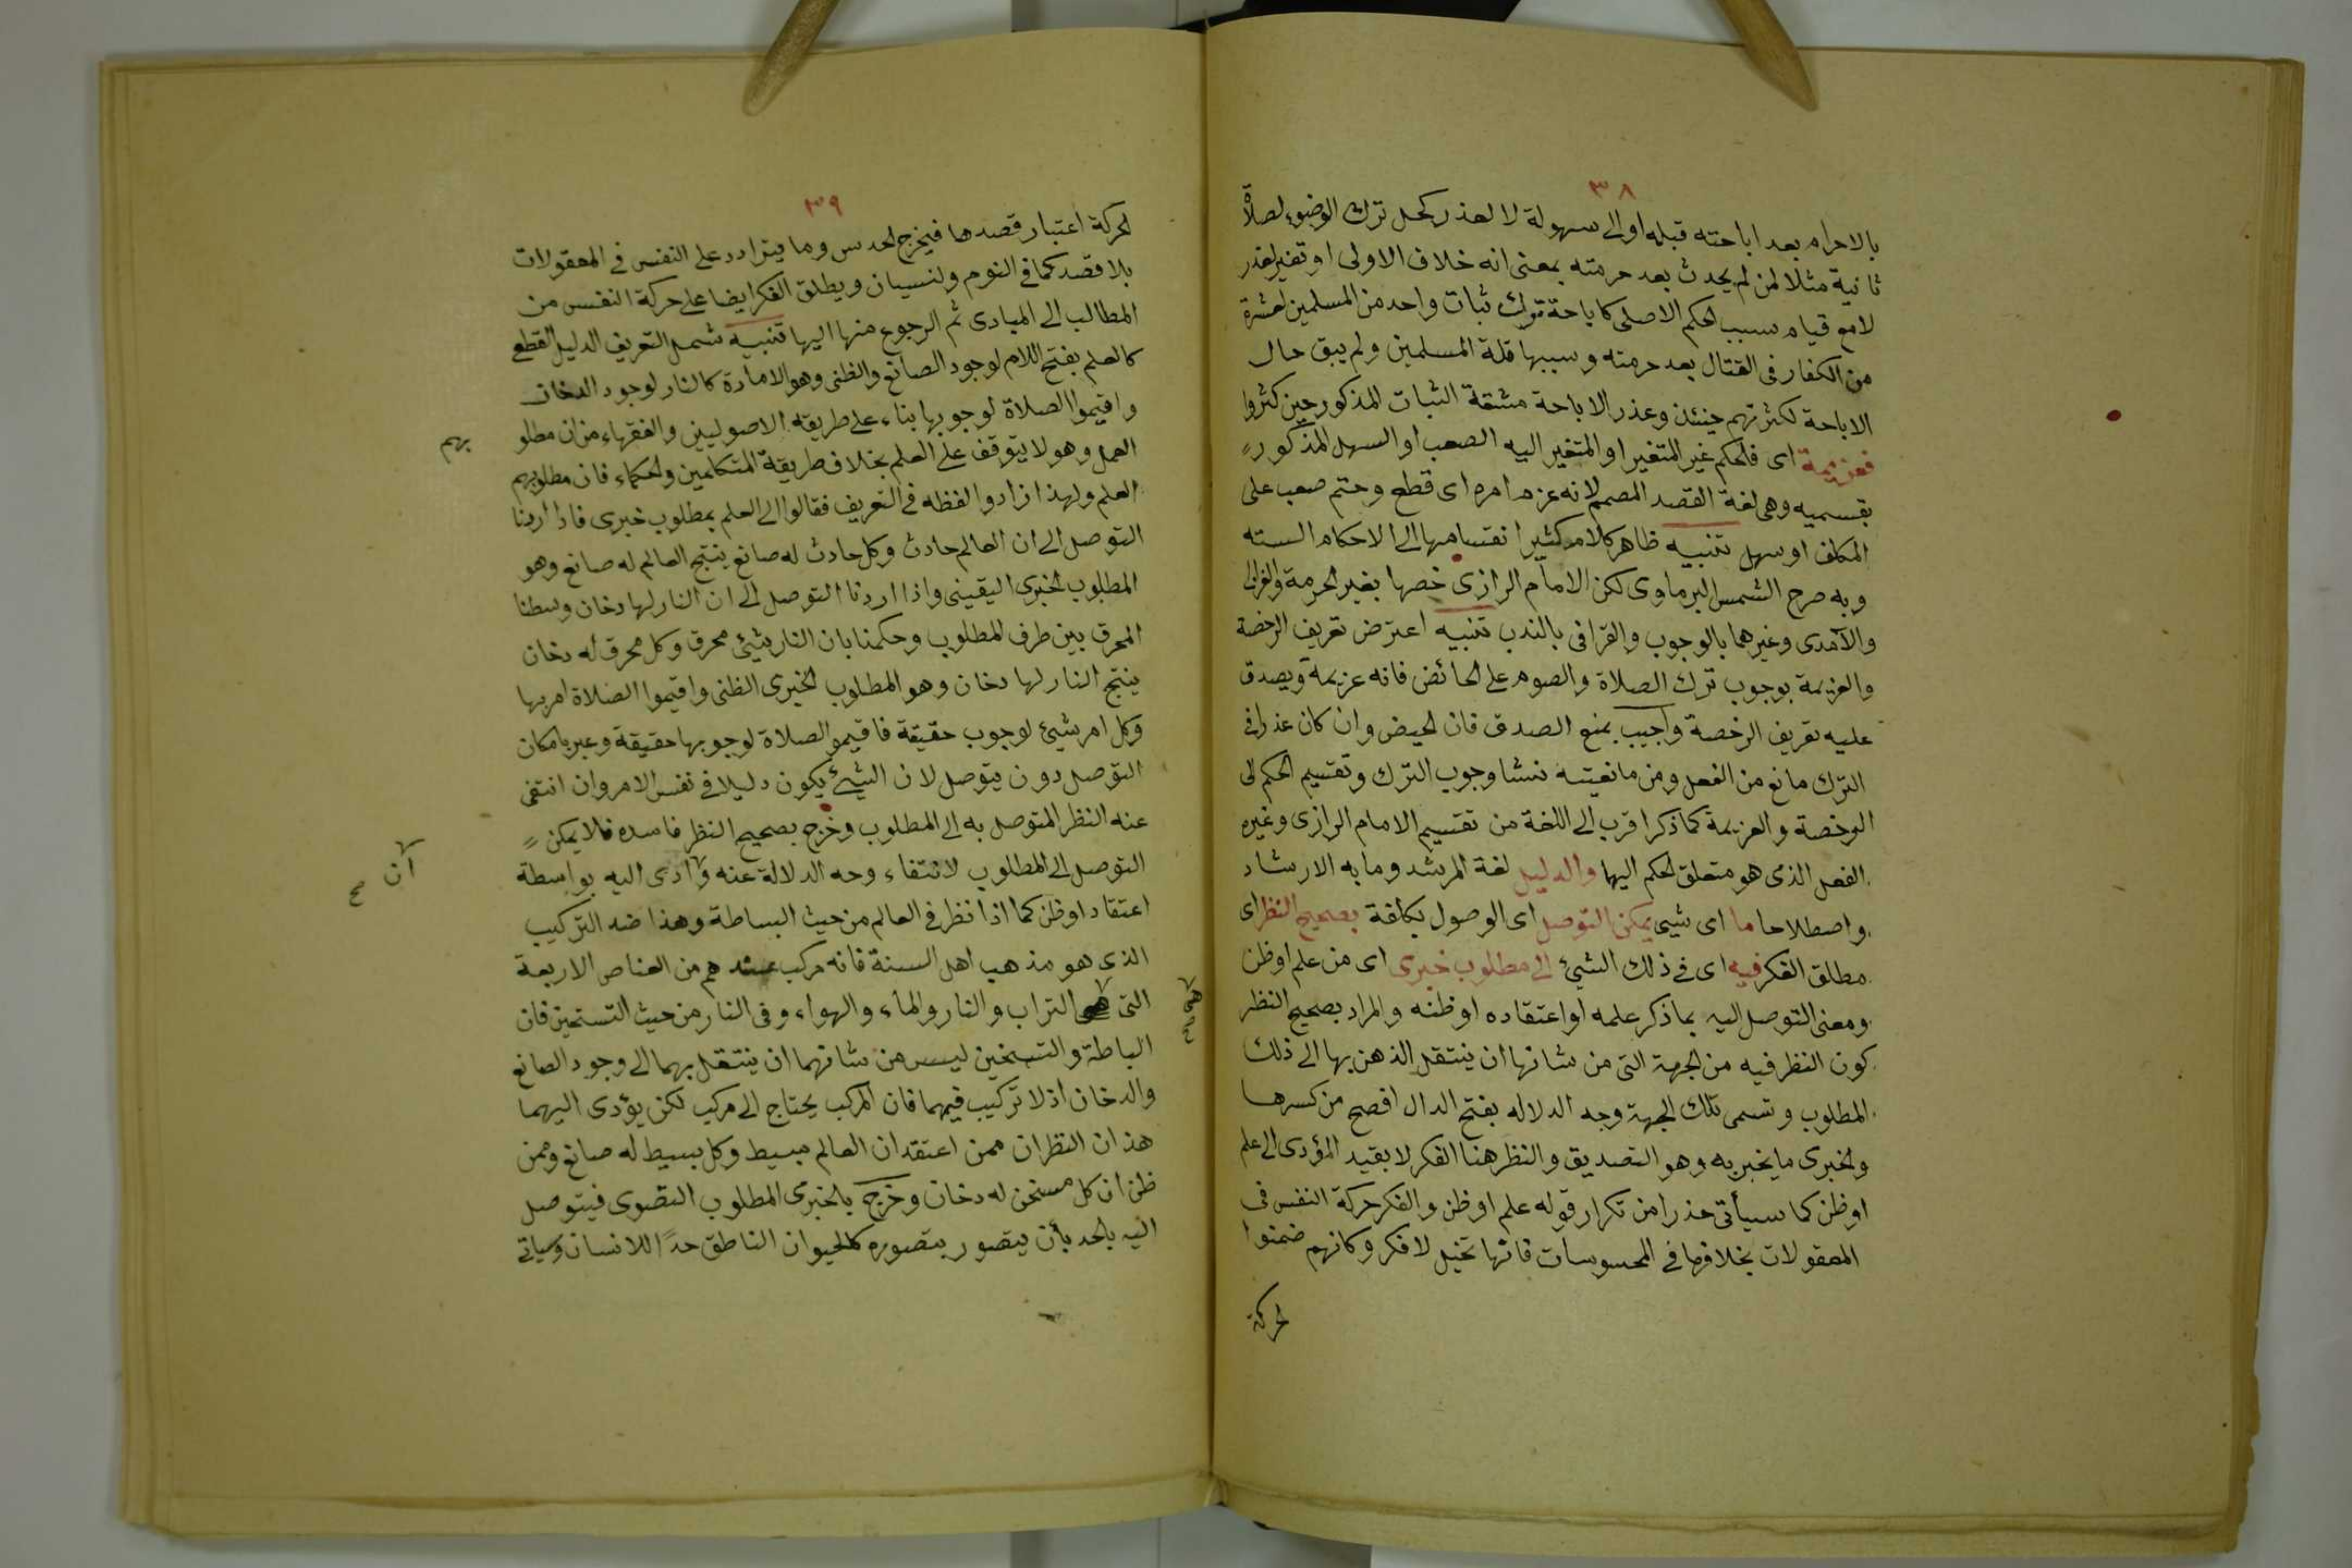 ٣٨
بالاحرام بعد اباحته قبله او الى سهولة لا لعذر كحل ترك الوضوء لصلاة
ثانية مثلا لمن لم يحدث بعد حرمته بمعنى انه خلاف الاولى او تغير لعذر
لا مع قيام سبب الحكم الاصلى كاباحة ترك ثبات واحد من المسلمين لعشرة
من الكفار فى القتال بعد حرمته وسببها قلة المسلمين ولم يبق حال
الاباحة لكثرتهم حينئذ وعذر الاباحة مشقة الثبات المذكور حين كثروا
فعزيمة اى فالحكم غير المتغير او المتغير اليه الصعب او السهل المذكور
بقسميه وهى لغة القصد المصمم لانه عزم امره اى قطع وحتم صعب على
المكلف او سهل تنبيه ظاهر كلام كثير انقسامها الى الاحكام السته
وبه صرح الشمس البرماوى لكن الامام الرازى خصها بغير الحرمة والغزالى
والآمدى وغيرهما بالوجوب والقرافى بالندب تنبيه اعترض تعريف الرخصة
والعزيمة بوجوب ترك الصلاة والصوم على الحائض فانه عزيمة ويصدق
عليه تعريف الرخصة واجيب بمنع الصدق فان الحيض وان كان عذرا فى
الترك مانع من الفعل ومن مانعيته نشا وجوب الترك وتقسيم الحكم الى
الرخصة والعزيمة كما ذكر اقرب الى اللغة من تقسيم الامام الرازى وغيره
الفعل الذى هو متعلق الحكم اليها والدليل لغة المرشد وما به الارشاد
واصطلاحا ما اى شيى يمكن التوصل اى الوصول بكلفة بصحيح النظر اى
مطلق الفكر فيه اى فى ذلك الشيئ الى مطلوب خبرى اى من علم او ظن
ومعنى التوصل اليه بما ذكر علمه او اعتقاده او ظنه والمراد بصحيح النظر
كون النظر فيه من الجهة التى من شانها ان ينتقل الذهن بها الى ذلك
المطلوب وتسمى تلك الجهة وجه الدلاله بفتح الدال افصح من كسرها
والخبرى ما يخبر به وهو التصديق والنظر هنا الفكر لا بقيد المؤدى الى علم
او ظن كما سيأتى حذرا من تكرار قوله علم او ظن والفكر حركة النفس فى
المعقولات بخلافها فى المحسوسات فانها تخيل لا فكر وكانهم ضمنوا
الحركة
٣٩
الحركة اعتبار قصدها فيخرج الحدس وما يترادد على النفس فى المعقولات
بلا قصد كما فى النوم والنسيان ويطلق الفكر ايضا على حركة النفس من
المطالب الى المبادى ثم الرجوع منها اليها تنبيه شمل التعريف الدليل القطعى
كالعلم بفتح اللام لوجود الصانع والظنى وهو الامارة كالنار لوجود الدخان
واقيموا الصلاة لوجوبها بناء على طريقه الاصوليين والفقهاء من ان مطلو
بهم
العمل وهو لا يتوقف على العلم بخلاف طريقة المتكلمين والحكماء فان مطلوبهم
العلم ولهذا زادوا لفظه فى التعريف فقالوا الى العلم بمطلوب خبرى فاذا اردنا
التوصل الى ان العالم حادث وكل حادث له صانع ينتج العالم له صانع وهو
المطلوب الخبرى اليقينى واذا اردنا التوصل الى ان النار لها دخان وسطنا
المحرق بين طرف المطلوب وحكمنا بان النار شيئ محرق وكل محرق له دخان
ينتج النار لها دخان وهو المطلوب الخبرى الظنى واقيموا الصلاة امر بها
وكل امر شيئ لوجوب حقيقة فاقيموالصلاة لوجوبها حقيقة وعبر بامكان
التوصل دون يتوصل لان الشيئ يكون دليلا فى نفس الامر وان انتفى
عنه النظر المتوصل به الى المطلوب وخرج بصحيح النظر فاسده فلا يمكن
التوصل الى المطلوب لانتفاء وجه الدلالة عنه وادى اليه بواسطة
ان صح
اعتقاد او ظن كما اذا نظر فى العالم من حيث البساطة وهذا ضد التركيب
الذى هو مذهب اهل السنة فانه مركب عندهم من العناصر الاربعة
التى هى التراب والنار والماء والهواء وفى النار من حيث التسخين فان
الباطة والتسخين ليس من شانهما ان ينتقل بهما الى وجود الصانع
والدخان اذ لا تركيب فيهما فان المركب يحتاج الى مركب لكن يؤدى اليهما
هذان النظران ممن اعتقد ان العالم بسيط وكل بسيط له صانع وممن
ظن ان كل مسخن له دخان وخرج بالخبرى المطلوب التصوى فيتوصل
اليه بالحد بأن يتصور بتصوره كالحيوان الناطق حدًا للانسان وسياتى